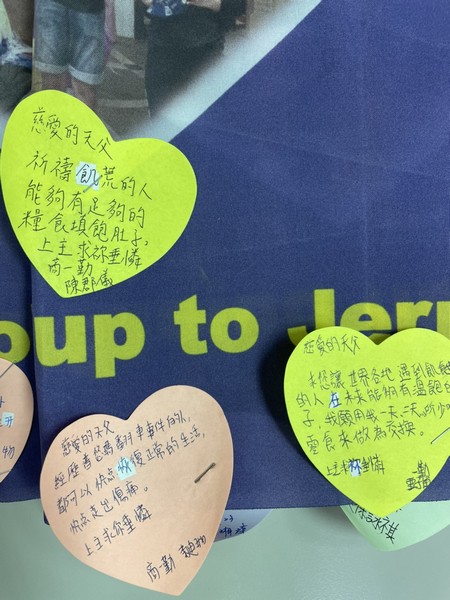 慈愛的天父
祈禱飢荒的人
能夠有足夠的
糧食填飽肚子,
上主求祢垂憐
商一勤
陳郡儀
oup to Jer
慈愛的天父
求您讓世界各地遇到飢餓
的人在未來能夠有溫飽的
子,我願用我一天、一天所少吃
零食來做為交換。
上主求祢垂憐
一勤
慈愛的天父
經歷普悠瑪翻車事件的人,
都可以快點恢復正常的生活,
快點走出傷痛。
上主求祢垂憐
商一勤
物